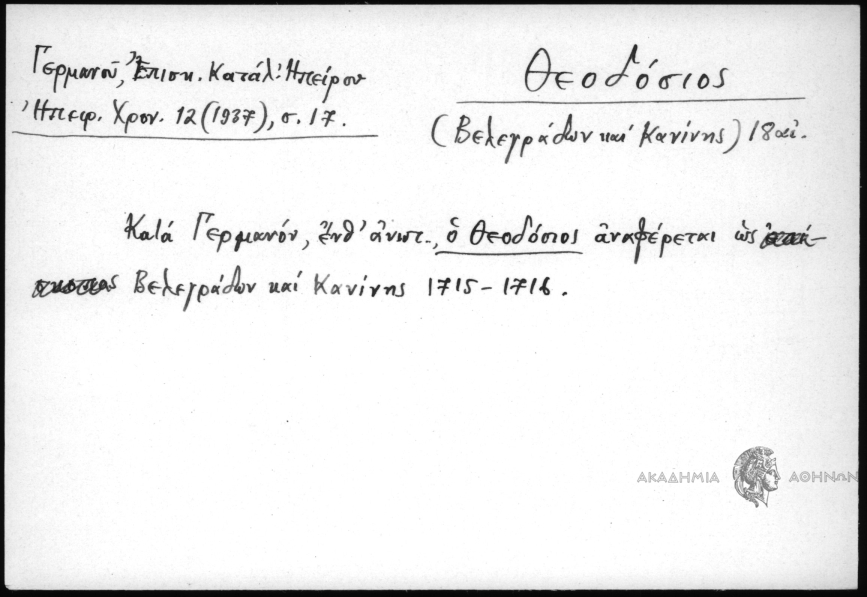 Γερμανοῦ, Ἐπισκ. Κατάλ. Ἠπείρου
Ἠπειρ. Χρον. 12 (1937), σ. 17.
Θεοδόσιος
(Βελεγράδων καί Κανίνης) 18 αἰ.
Κατά Γερμανόν, ἔνθ' ἀνωτ., ὁ Θεοδόσιος ἀναφέρεται ὡς
Βελεγράδων καί Κανίνης 1715-1716.
ΑΚΑΔΗΜΙΑ ΑΘΗΝΩΝ